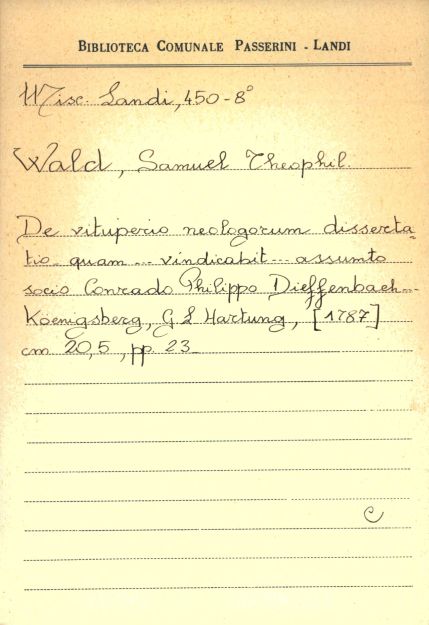 BIBLIOTECA COMUNALE PASSERINI - LANDI
Misc. Landi, 450-8°
Wald, Samuel Theophil.
De vituperio neologorum disserta-
tio quam ... vindicabit ... assumto
socio Conrado Philippo Dieffenbach..
Koenigsberg, G L Hartung, [1787]
cm 20,5, pp. 23
C